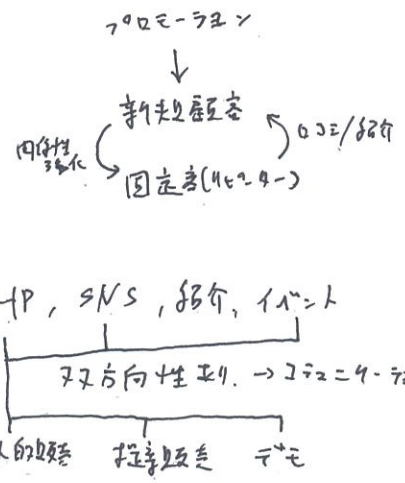 プロモーション
↓
新規顧客
関係性
強化
口コミ/紹介
固定客(リピーター)
HP, SNS, 紹介, イベント
双方向性あり. → コミュニケーシ
人的販売
デモ